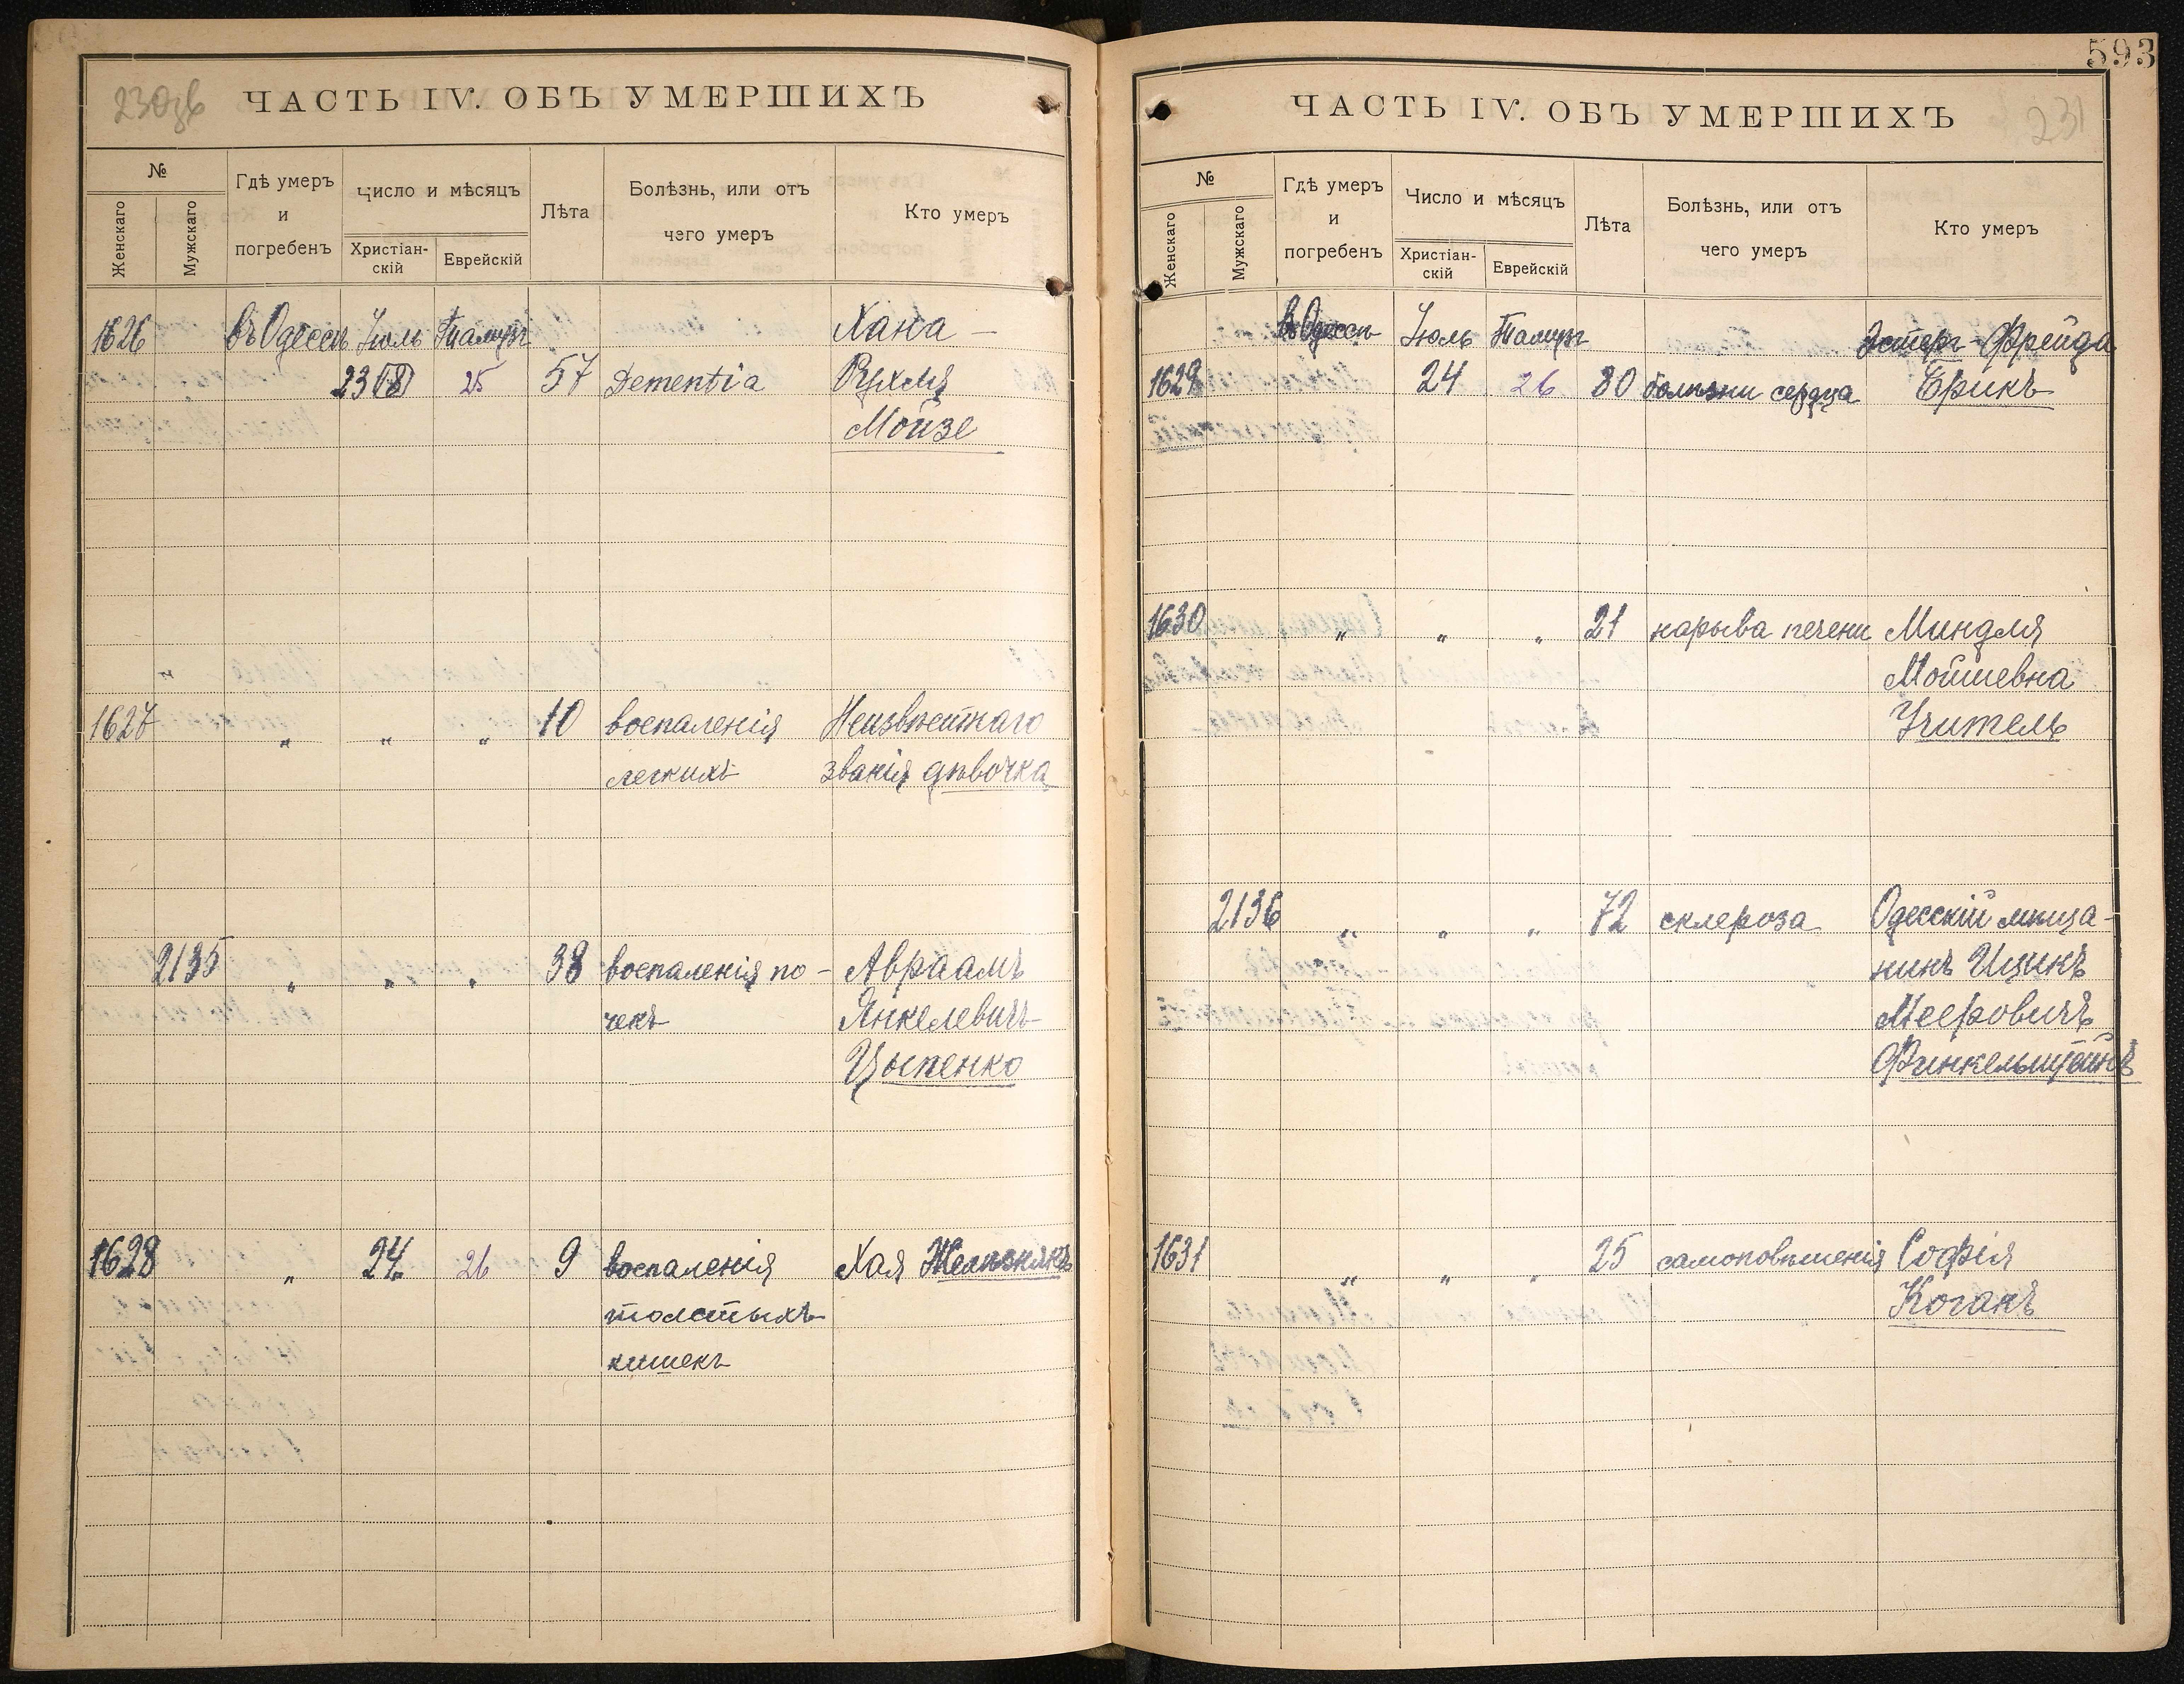 593
230об
ЧАСТЬ IV. ОБЪ УМЕРШИХЪ
№
Женскаго
Мужскаго
Гдѣ умеръ
и
погребенъ
Число и мѣсяцъ
Христіан-
скій
Еврейскій
Лѣта
Болѣзнь, или отъ
чего умеръ
Кто умеръ
1626 въ Одессѣ Іюль Тамузъ Хана -
23 25 57 Dementia Рухля
Мойзе
1627 " " " 10 воспаленія Неизвѣстнаго
легкихъ званія дѣвочка
2135 " " " 38 воспаленія по- Авраамъ
чекъ Янкелевичъ
Цыпенко
1628 " 24 26 9 воспаленія Хая Желѣзнякъ
толстыхъ
кишекъ
ЧАСТЬ IV. ОБЪ УМЕРШИХЪ
231
№
Женскаго
Мужскаго
Гдѣ умеръ
и
погребенъ
Число и мѣсяцъ
Христіан-
скій
Еврейскій
Лѣта
Болѣзнь, или отъ
чего умеръ
Кто умеръ
въ Одессѣ Іюль Тамузъ Эстеръ-Фрейда
1629 24 26 80 болѣзни сердца Ерикъ
1630 " " " 21 нарыва печени Миндля
Мойшевна
Учитель
2136 " " " 72 склероза Одесскій мѣща-
нинъ Ицикъ
Мееровичъ
Финкельштейнъ
1631 " " " 25 самоповѣшенія Софія
Коганъ